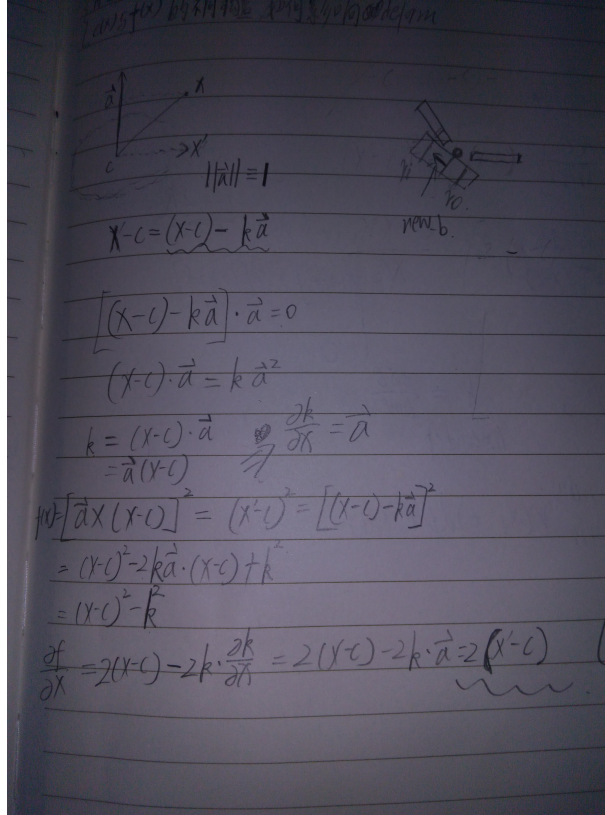 a⃗
x
c
x'
||a⃗|| ≡ 1
r₀
new_b.
x'-c = (x-c) - ka⃗
[(x-c)-ka⃗]·a⃗=0
(x-c)·a⃗ = ka⃗²
k = (x-c)·a⃗ ⇒ ∂k/∂x = a⃗
= a⃗(x-c)
f(x)=[a⃗×(x-c)]² = (x'-c)² = [(x-c)-ka⃗]²
= (x-c)²-2ka⃗·(x-c)+k²
= (x-c)²-k²
∂f/∂x = 2(x-c)-2k·∂k/∂x = 2(x-c)-2k·a⃗=2(x'-c)